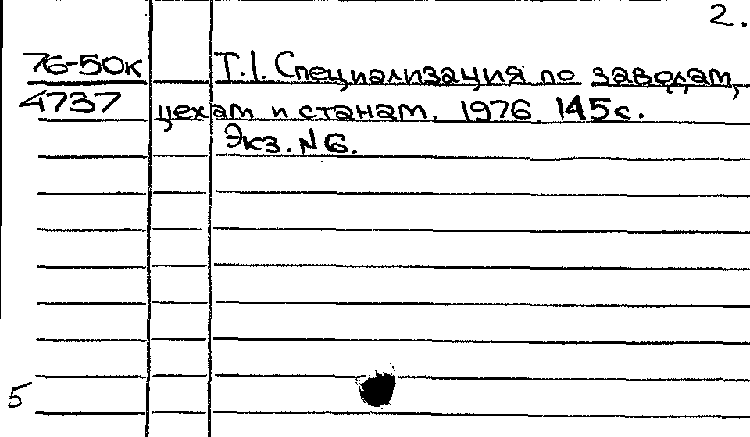 2.
76-50к Т.1. Специализация по заводам,
4737 цехам и станам. 1976. 145с.
Экз. № 6.
5